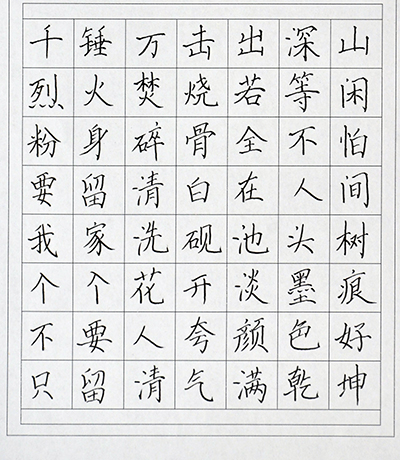 千锤万击出深山
烈火焚烧若等闲
粉身碎骨全不怕
要留清白在人间
我家洗砚池头树
个个花开淡墨痕
不要人夸颜色好
只留清气满乾坤